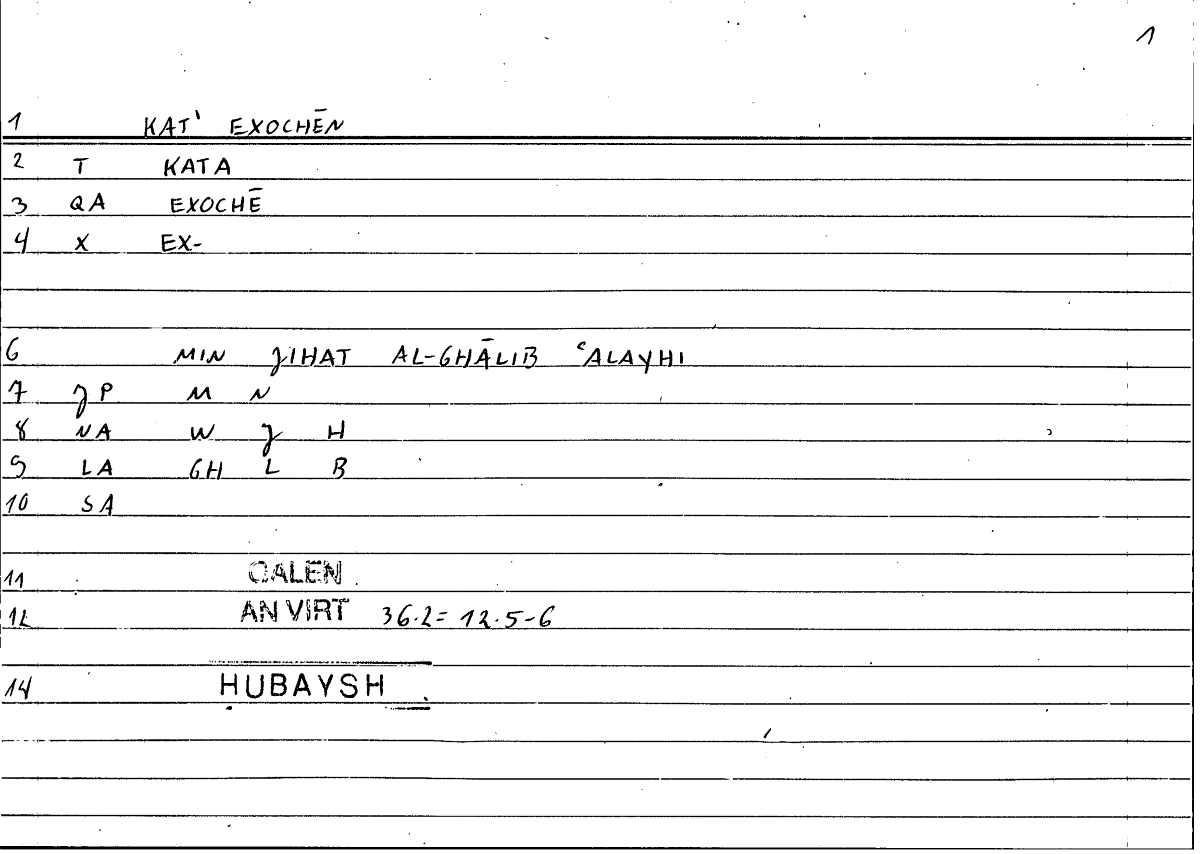 1
1 KAT' EXOCHĒN
2 T KATA
3 QA EXOCHĒ
4 X EX-
6 MIN JIHAT AL-GHĀLIB ʿALAYHI
7 JP M N
8 NA W J H
9 LA GH L B
10 SA
11 GALEN
12 AN VIRT 36.2=12.5-6
14 HUBAYSH